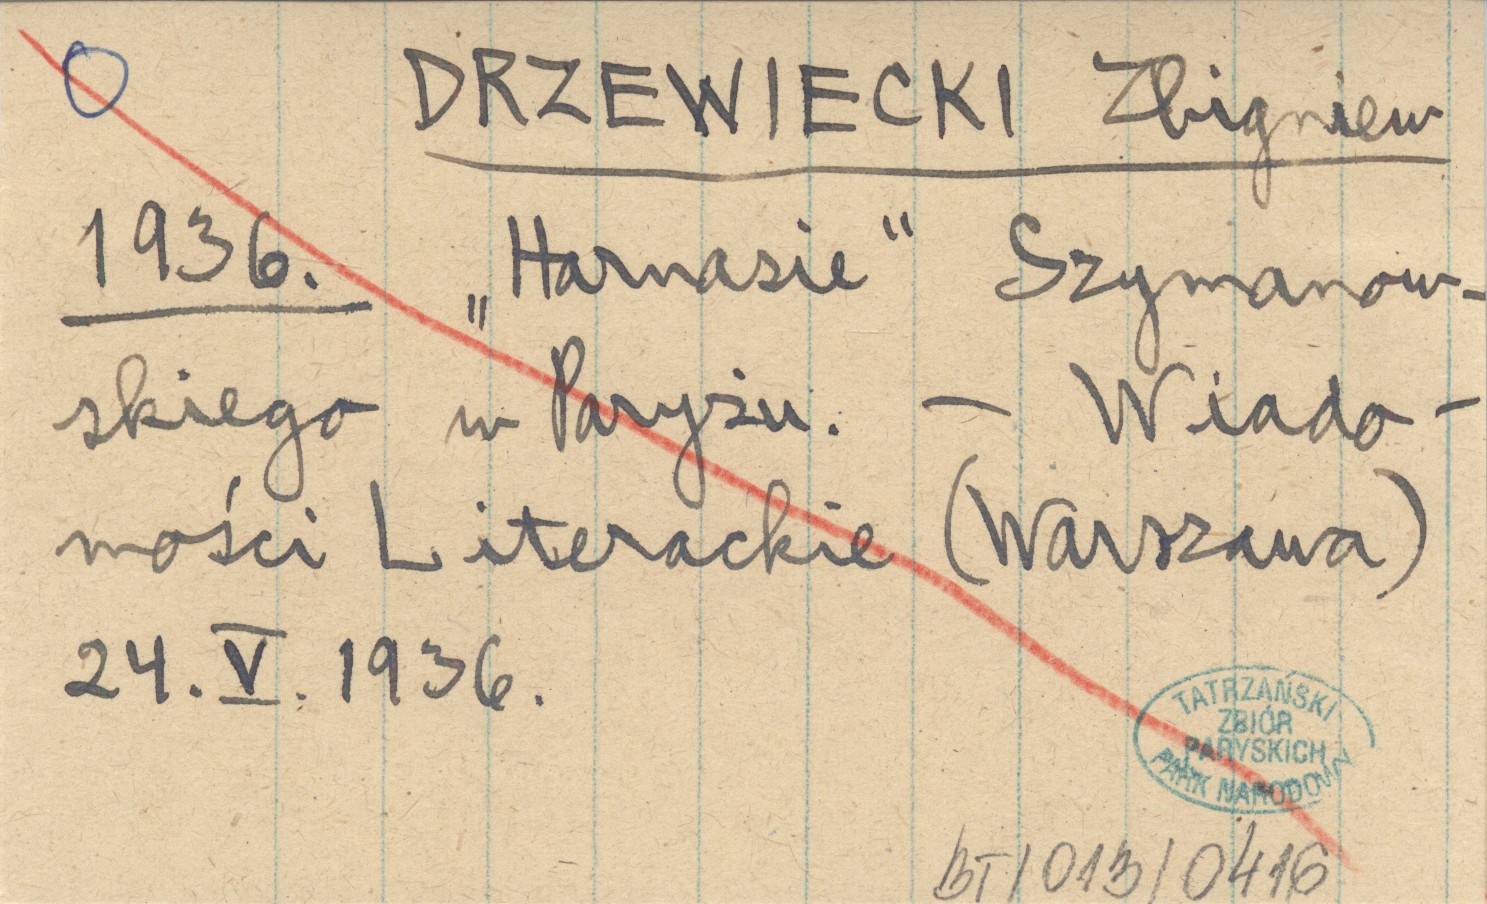 DRZEWIECKI Zbigniew
1936. „Harnasie" Szymanow-
skiego w Paryżu. — Wiado-
mości Literackie (Warszawa)
24. V. 1936.
TATRZAŃSKI
ZBIÓR
PARYSKICH
PARK NARODOWY
BT/013/0416